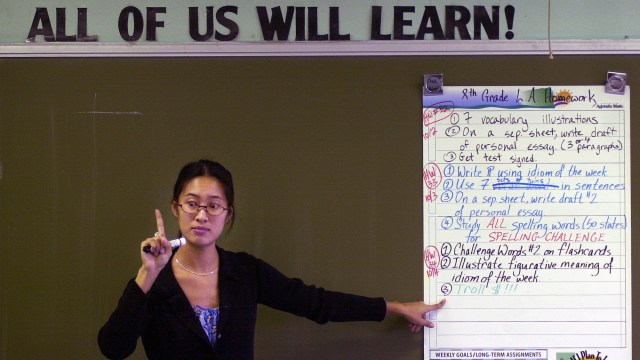 ALL OF US WILL LEARN!
8th Grade LA Homework
① 7 vocabulary illustrations
② On a sep. sheet, write draft
of personal essay. (3 or 4 paragraphs)
③ Get test signed.
10/2
HW
① Write ¶ using idiom of the week
② Use 7 in sentences
10/3
③ On a sep. sheet, write draft #2
of personal essay
④ Study ALL spelling words (50 states)
for SPELLING CHALLENGE
HW
10/4
① Challenge Words #2 on flashcards
② Illustrate figurative meaning of
idiom of the week
③ Troll $!!!
WEEKLY GOALS/LONG-TERM ASSIGNMENTS